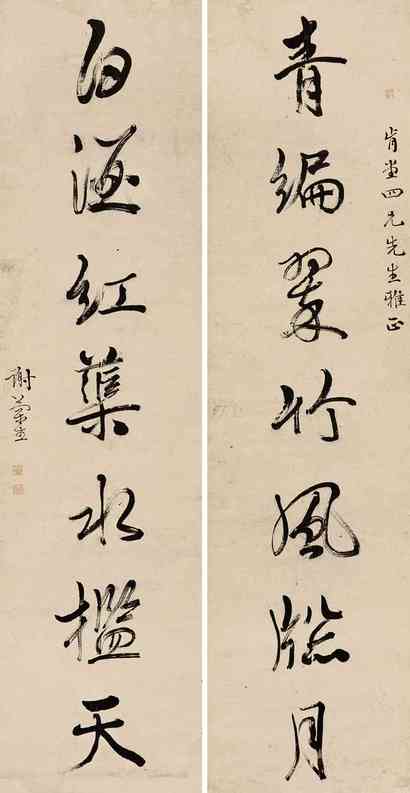 肯堂四兄先生雅正
青編翠竹風牕月
白紅蕖水檻天
謝蘭生